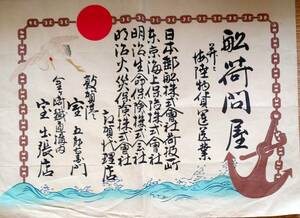 船荷問屋
並ニ海陸物貨運送業
日本郵船株式会社荷扱所
東京海上保険株式会社
明治生命保険株式会社
明治火災保険株式会社
代理店
敦賀港
室五郎右衛門
出張店